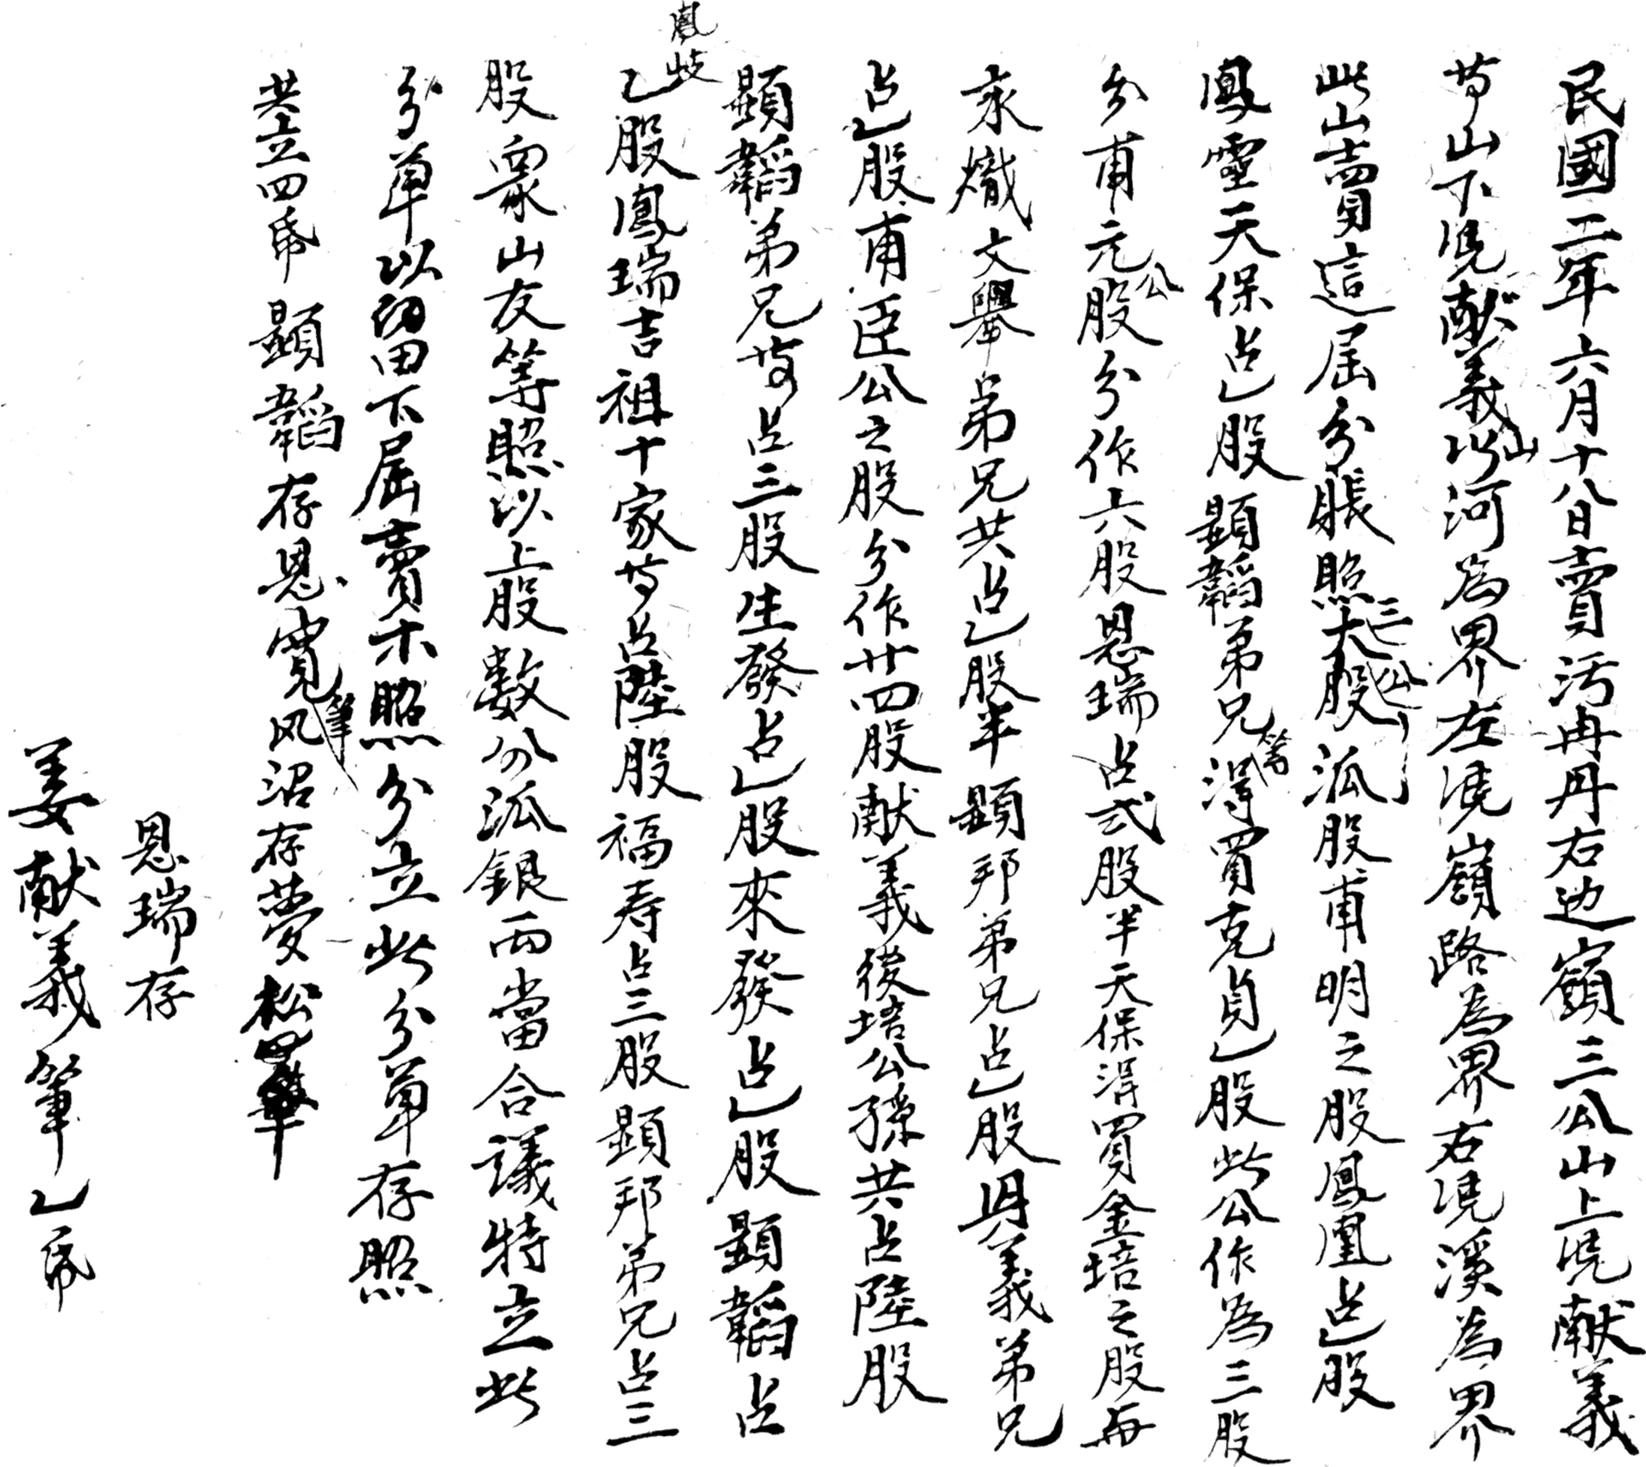 民國二年六月十八日賣污冉丹右边嶺三公山上凭献義
等山下凭献義山以河為界左凭嶺路為界右凭溪為界
此山賣這屆分賬照三公大股派股甫明之股鳳凰占乙股
鳳靈天保占乙股顯韜弟兄等得買克貞乙股此公作為三股
分甫元公股分作六股恩瑞占弍股半天保得買金培之股每
永熾文舉弟兄共占乙股半顯邦弟兄占乙股與義弟兄
占乙股甫臣公之股分作廿四股献義後培公孫共占陸股
顯韜弟兄等占三股生發占乙股來發占乙股顯韜占
乙股鳳岐鳳瑞吉祖十家等占陸股福寿占三股顯邦弟兄占三
股眾山友等照以上股數分派銀両當合議特立此
分单以留下屆賣木照分立此分单存照
共立四帋顯韜存恩寬筆风沼存夢松
恩瑞存
姜献義筆乙帋